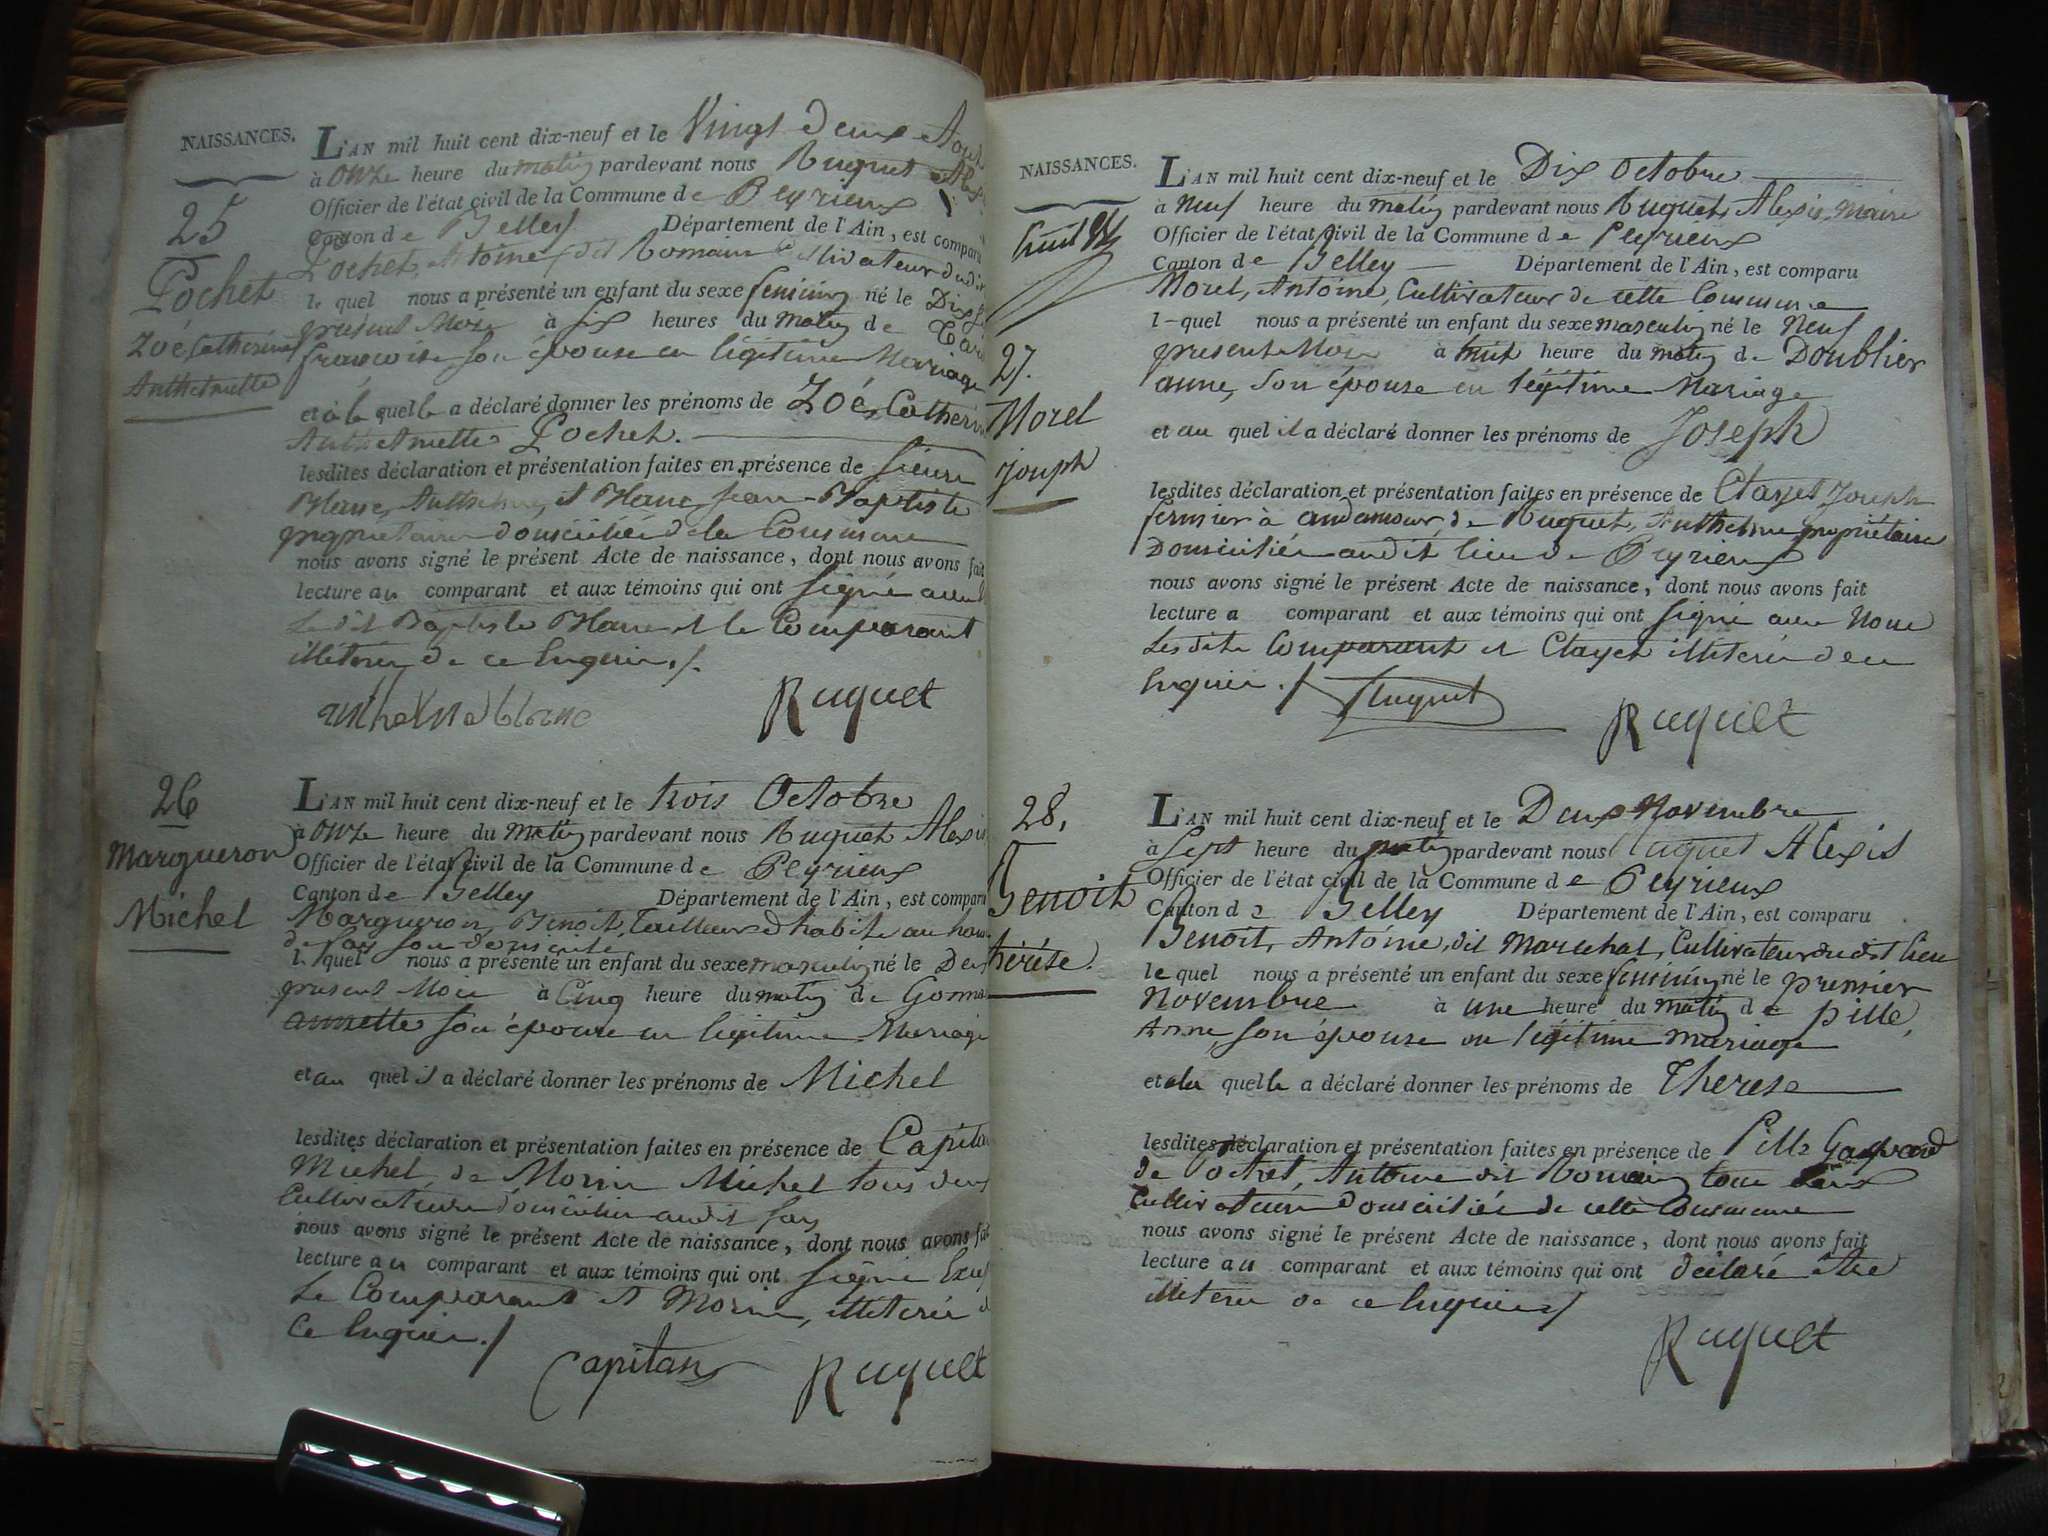 NAISSANCES.
25
Pochet
Zoé Catherine
Anthelmette
L'AN mil huit cent dix-neuf et le Vingt deux Aout
à onze heure du matin pardevant nous Ruquet Alexis
Officier de l'état civil de la Commune de Peyrieux
Canton de Belley Département de l'Ain, est comparu
Pochet, Antoine, dit Romain Cultivateur dudit
le quel nous a présenté un enfant du sexe feminin né le Dix
present Mois à six heures du matin de
francoise son épouse en légitime Mariage
et à la quelle a déclaré donner les prénoms de Zoé, Catherine
Anthelmette Pochet.
lesdites déclaration et présentation faites en présence de sieurs
Blanc, Anthelme, et Blanc, Jean-Baptiste
propriétaires domiciliés de la Commune
nous avons signé le présent Acte de naissance, dont nous avons fait
lecture au comparant et aux témoins qui ont signé
Le dit Baptiste Blanc et le Comparant
illiterés de ce Enquis./.
anthelme blanc Ruquet
26
Margueron
Michel
L'AN mil huit cent dix-neuf et le trois Octobre
à onze heure du matin pardevant nous Ruquet Alexis
Officier de l'état civil de la Commune de Peyrieux
Canton de Belley Département de l'Ain, est comparu
Margueron, Benoit, Tailleur d'habits au
de fay son domicile
le quel nous a présenté un enfant du sexe masculin né le Deux
present Mois à Cinq heure du matin de
annette son épouse en légitime Mariage
et au quel il a déclaré donner les prénoms de Michel
lesdites déclaration et présentation faites en présence de Capitan
Michel de Morin Michel tous deux
Cultivateurs domiciliés audit fay
nous avons signé le présent Acte de naissance, dont nous avons fait
lecture au comparant et aux témoins qui ont signé
Le Comparant et Morin, illiterés de
Ce Enquis./
Capitan Ruquet
NAISSANCES.
27.
Morel
Joseph
L'AN mil huit cent dix-neuf et le Dix Octobre
à neuf heure du matin pardevant nous Ruquet, Alexis, Maire
Officier de l'état civil de la Commune de Peyrieux
Canton de Belley Département de l'Ain, est comparu
Morel, Antoine, Cultivateur de cette Commune
l-quel nous a présenté un enfant du sexe masculin né le Neuf
present Mois à huit heure du matin de Doublier
anne, son épouse en légitime Mariage
et au quel il a déclaré donner les prénoms de Joseph
lesdites déclaration et présentation faites en présence de Clayet Joseph
fermier à andamour, de Ruquet, Anthelme propriétaire
Domiciliés audit lieu de Peyrieux
nous avons signé le présent Acte de naissance, dont nous avons fait
lecture a comparant et aux témoins qui ont signé avec Nous
Lesdits Comparant et Clayet illiterés de ce
Enquis./ Ruquet
Ruquet
28,
Benoit
térése.
L'AN mil huit cent dix-neuf et le Deux Novembre
à Sept heure du matin pardevant nous Ruquet Alexis
Officier de l'état civil de la Commune de Peyrieux
Canton de Belley Département de l'Ain, est comparu
Benoit, Antoine, dit Marechal, Cultivateur dudit lieu
le quel nous a présenté un enfant du sexe feminin né le premier
Novembre à une heure du matin de pille,
Anne, son épouse en légitime mariage
et à la quelle a déclaré donner les prénoms de Therese
lesdites déclaration et présentation faites en présence de Pille Gaspard
de Pochet, Antoine dit Romain, tous deux
Cultivateurs Domiciliés de cette Commune
nous avons signé le présent Acte de naissance, dont nous avons fait
lecture au comparant et aux témoins qui ont déclaré être
illiterés de ce Enquis/
Ruquet